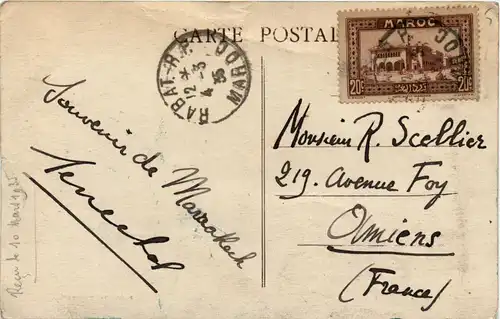 CARTE POSTAL
MAROC
20c 20c
RABAT-R.P.
12 - 3
4 35
MAROC
Souvenir de Marrakech
Senechal
Monsieur R. Scellier
219. Avenue Foy
Amiens
(France)
Reçu le 10 Mars 1935